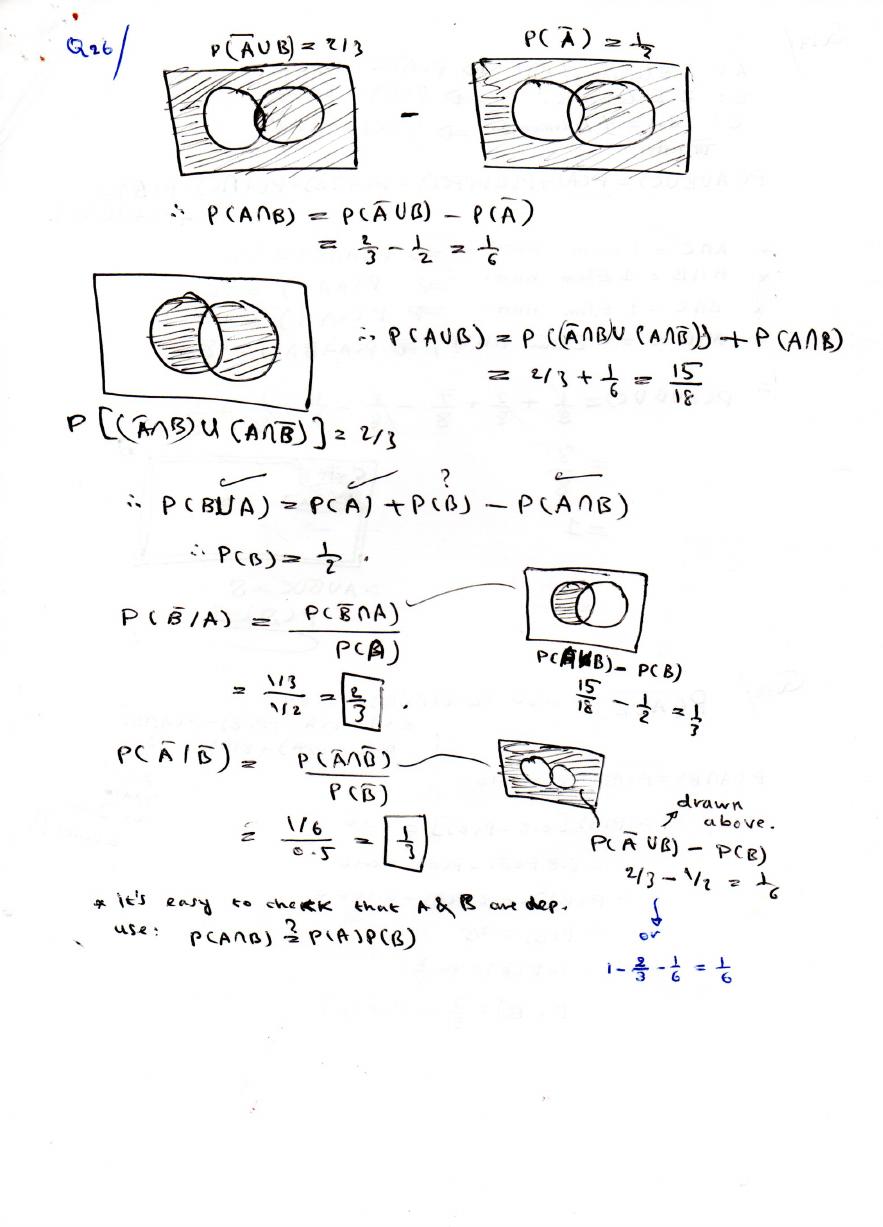 Q26/
P(A̅∪B) = 2/3
P(A̅) = 1/2
-
∴ P(A∩B) = P(A̅∪B) - P(A̅)
= 2/3 - 1/2 = 1/6
∴ P(A∪B) = P((A̅∩B)∪(A∩B̅)) + P(A∩B)
= 2/3 + 1/6 = 15/18
P[(A̅∩B)∪(A∩B̅)] = 2/3
?
∴ P(B∪A) = P(A) + P(B) - P(A∩B)
∴ P(B) = 1/2.
P(B̅/A) = P(B̅∩A)/P(A)
P(A∪B) - P(B)
= 1/3 / 1/2 = 2/3
15/18 - 1/2 = 1/3
P(A̅/B̅) = P(A̅∩B̅)/P(B̅)
drawn above.
= 1/6 / 0.5 = 1/3
P(A̅∪B) - P(B)
2/3 - 1/2 = 1/6
or
1 - 2/3 - 1/6 = 1/6
* it's easy to check that A & B are dep.
use: P(A∩B) ?= P(A)P(B)